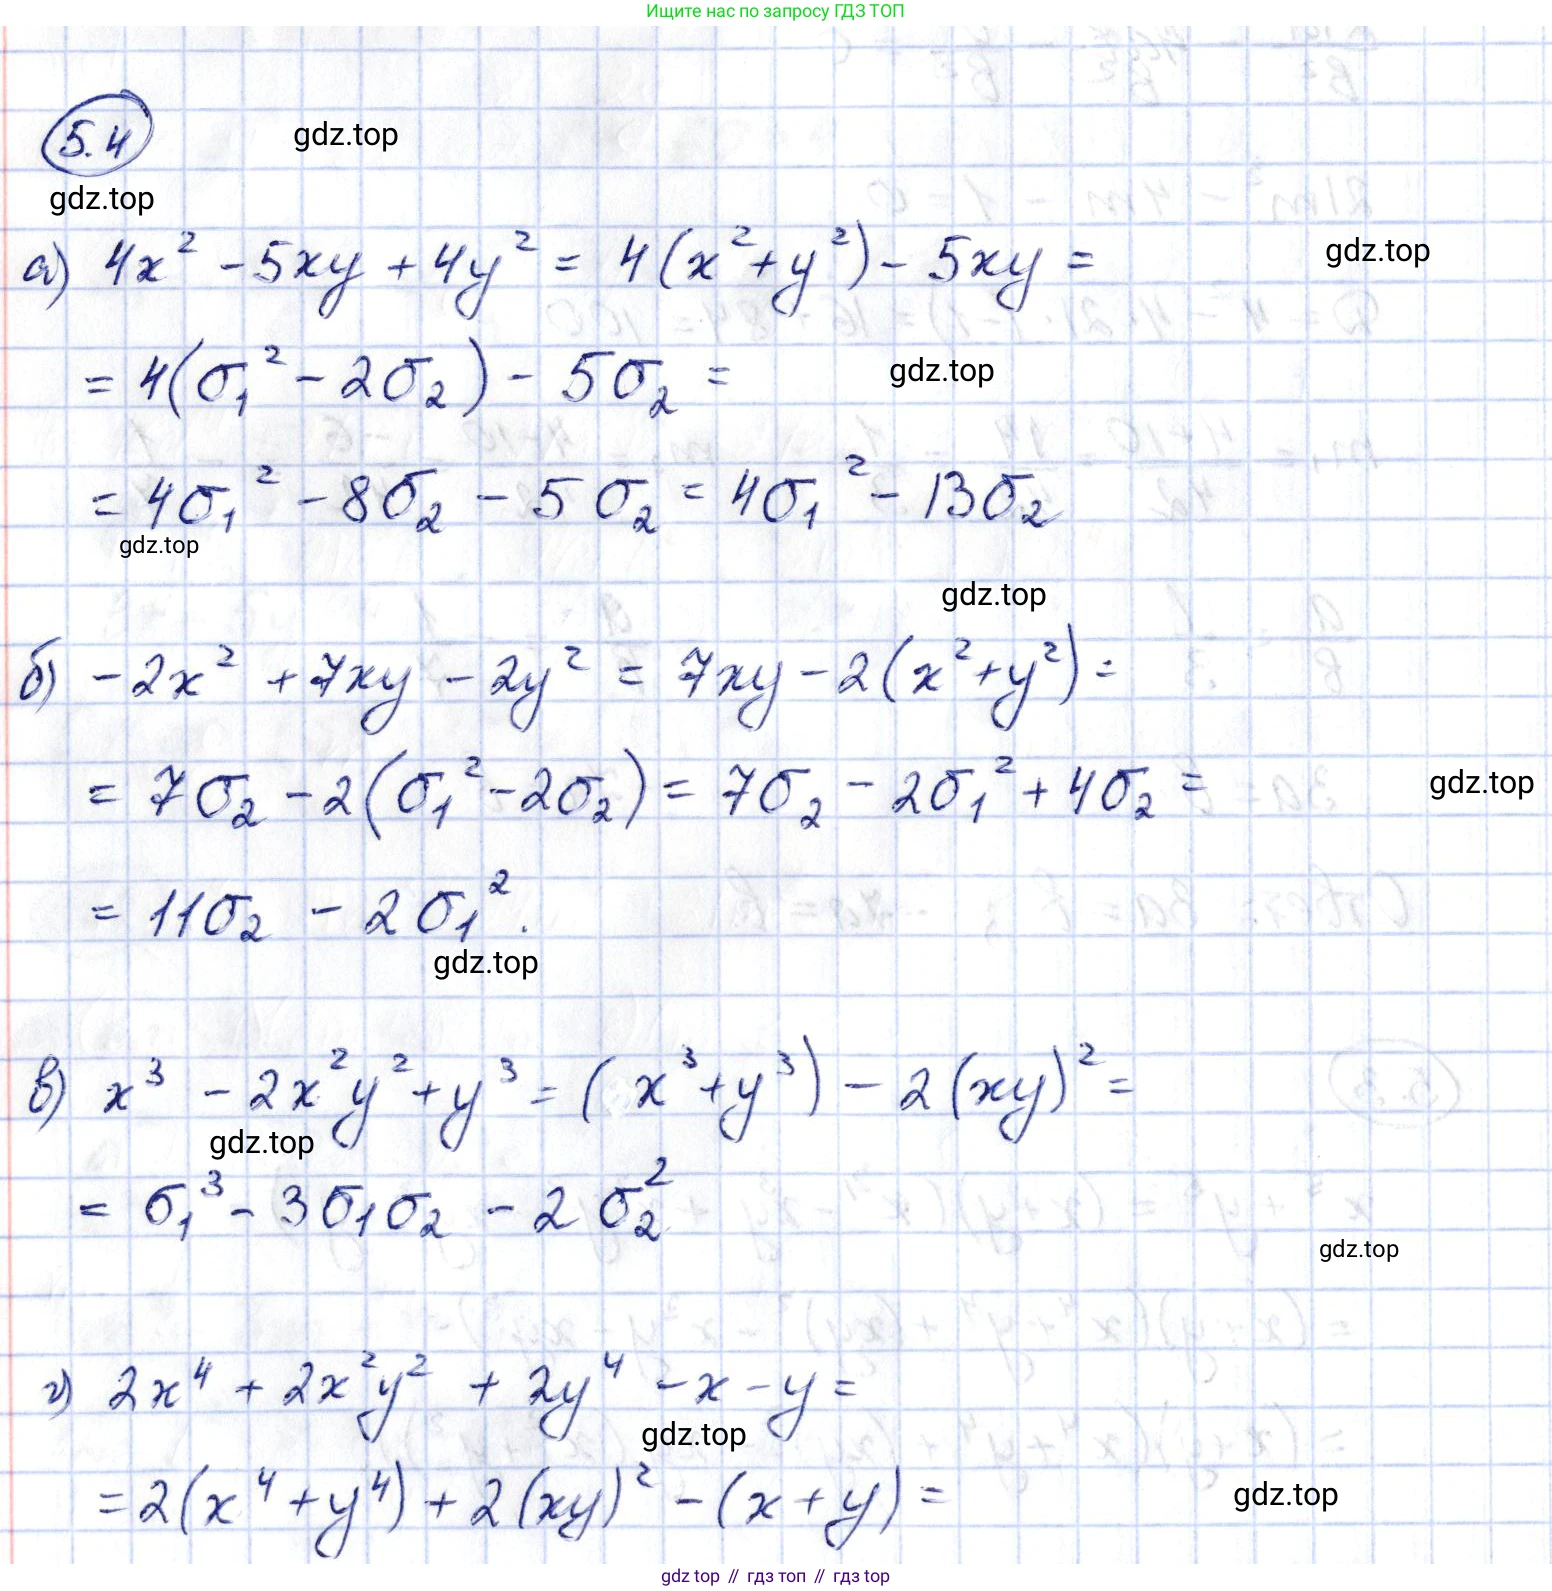 Ищите нас по запросу ГДЗ ТОП
5.4
gdz.top
gdz.top
а) 4x² - 5xy + 4y² = 4(x² + y²) - 5xy =
gdz.top
= 4(σ₁² - 2σ₂) - 5σ₂ =
gdz.top
= 4σ₁² - 8σ₂ - 5σ₂ = 4σ₁² - 13σ₂
gdz.top
gdz.top
б) -2x² + 7xy - 2y² = 7xy - 2(x² + y²) =
= 7σ₂ - 2(σ₁² - 2σ₂) = 7σ₂ - 2σ₁² + 4σ₂ =
gdz.top
= 11σ₂ - 2σ₁².
gdz.top
в) x³ - 2x²y² + y³ = (x³ + y³) - 2(xy)² =
gdz.top
= σ₁³ - 3σ₁σ₂ - 2σ₂²
gdz.top
г) 2x⁴ + 2x²y² + 2y⁴ - x - y =
gdz.top
= 2(x⁴ + y⁴) + 2(xy)² - (x + y) =
gdz.top
gdz top // гдз топ // гдз top